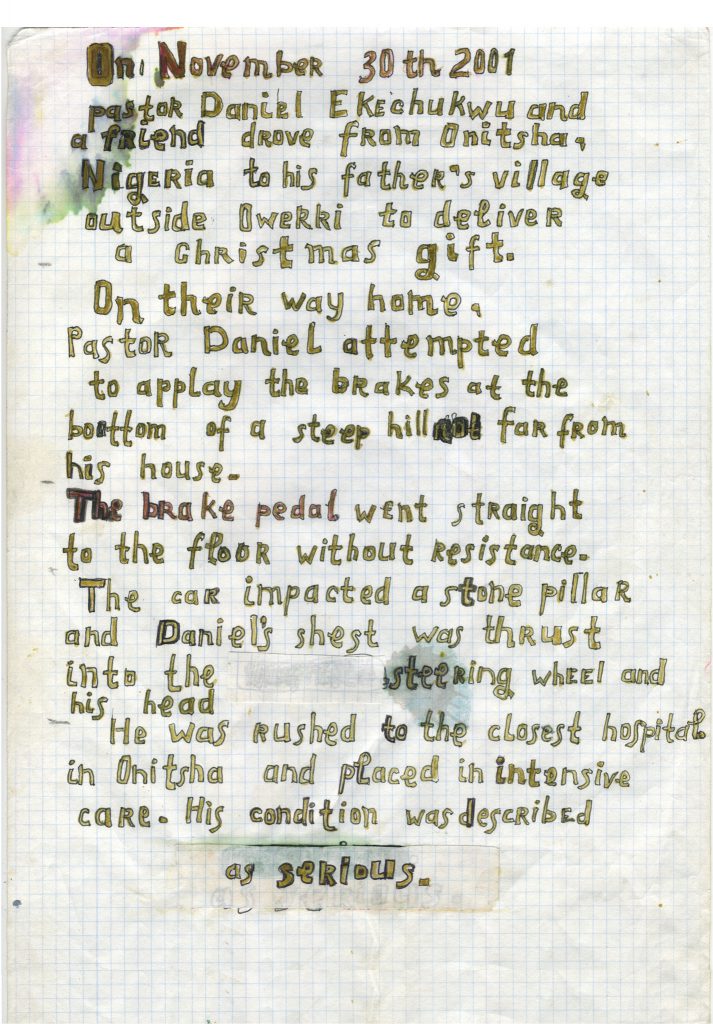 On November 30th 2001
pastor Daniel Ekechukwu and
a friend drove from Onitsha,
Nigeria to his father's village
outside Owerri to deliver
a christmas gift.
On their way home,
Pastor Daniel attempted
to applay the brakes at the
bottom of a steep hill not far from
his house.
The brake pedal went straight
to the floor without resistance.
The car impacted a stone pillar
and Daniel's shest was thrust
into the steering wheel and
his head
He was rushed to the closest hospital
in Onitsha and placed in intensive
care. His condition was described
as serious.